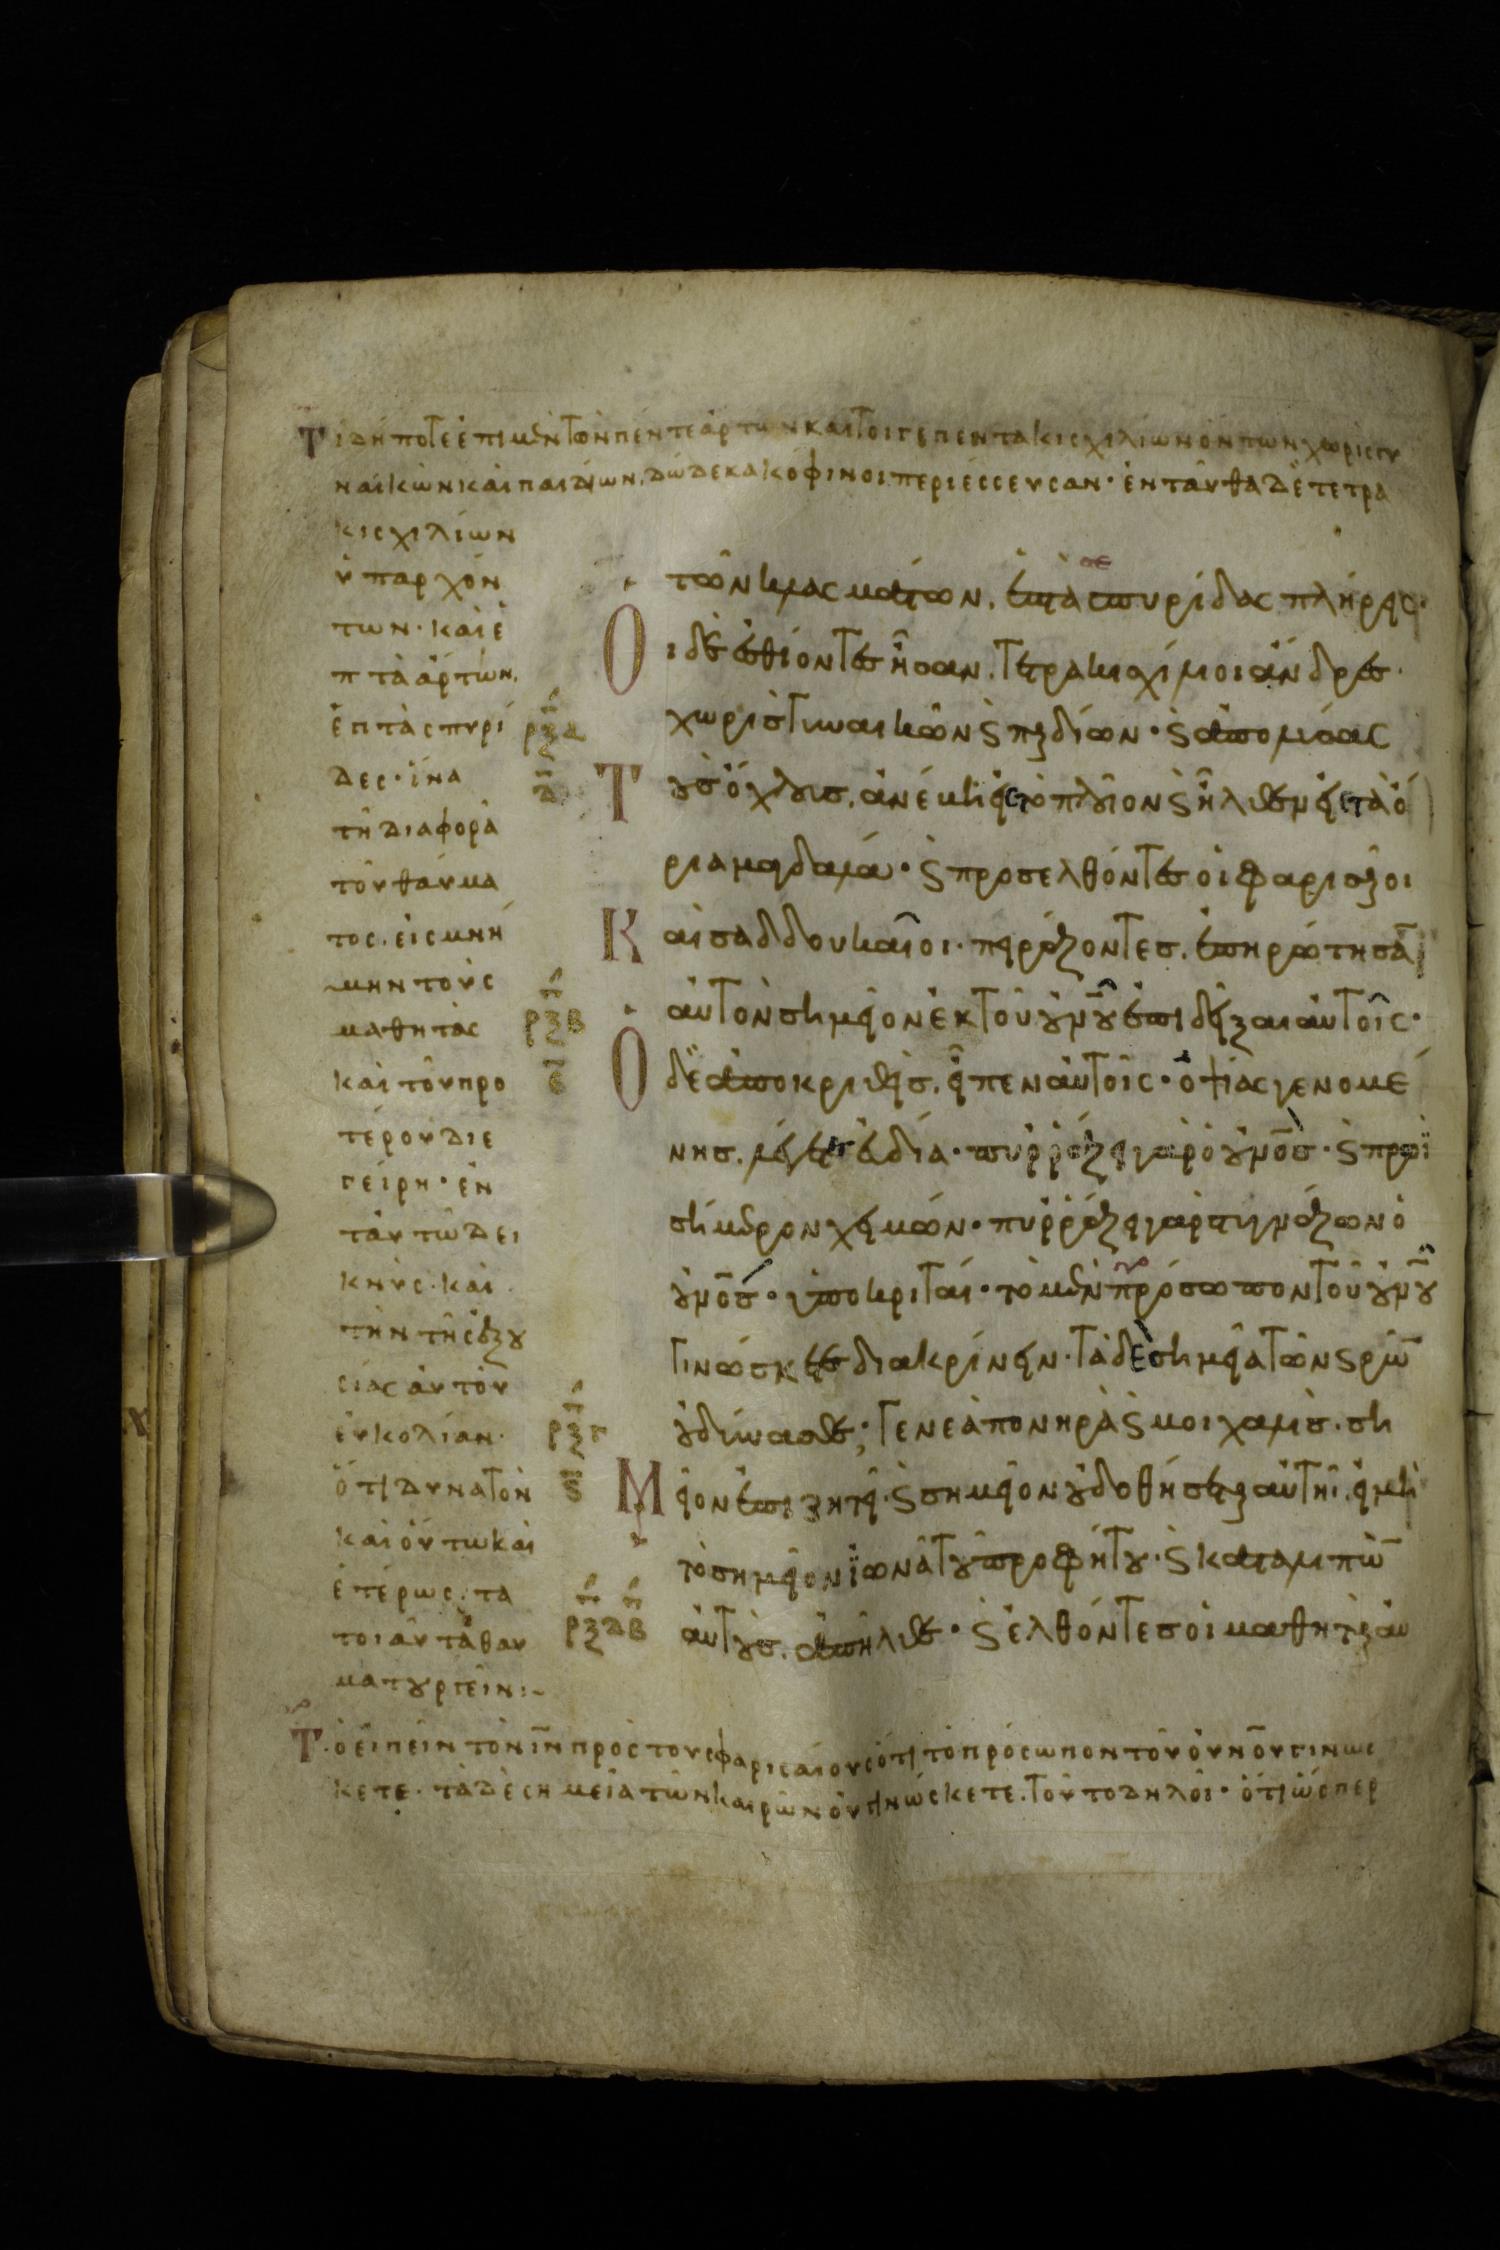 Τί δήποτε ἐπὶ μὲν τῶν πέντε ἄρτων καίτοιγε πεντακισχιλίων ὄντων χωρὶς γυ
ναικῶν καὶ παιδίων, δώδεκα κόφινοι περιέσσευσαν· ἐνταῦθα δὲ τετρα
κισχιλίων
ὑπαρχόν
των· καὶ ἑ
πτὰ ἄρτων,
ἑπτὰ σπυρί
δες· ἵνα
τῆ διαφορᾶ
τοῦ θαύμα
τος, εἰς μνή
μην τοὺς
μαθητὰς
καὶ τοῦ προ
τέρου διε
γείρη· ἐν
ταυτῶ δει
κνὺς· καὶ
τὴν τῆς ἐξου
σίας αὐτοῦ
εὐκολίαν·
ὅτι δυνατὸν
καὶ οὕτω καὶ
ἑτέρως, τὰ
τοιαῦτα θαυ
ματουργεῖν:~
τῶν κλασμάτων, ἑπτὰ σπυρίδας πλήρεις·
Οἱ δὲ ἐσθίοντες ἦσαν, τετρακισχίλιοι ἄνδρες·
ρξα
χωρὶς γυναικῶν ϛ παιδίων· ϛ ἀπολύσας
δ
Τοὺς ὄχλους, ἀνέβη εἰς τὸ πλοῖον ϛ ἦλθεν εἰς τὰ ὅ
ρια μαγδαλά· ϛ προσελθόντες οἱ φαρισαῖοι
Καὶ σαδδουκαῖοι· πειράζοντες, ἐπηρώτησα̅
ρξβ
αὐτὸν σημεῖον ἐκ τοῦ οὐν̅ου ἐπιδεῖξαι αὐτοῖς·
ε
Ὁ δὲ ἀποκριθεὶς, εἶπεν αὐτοῖς· ὀψίας γενομέ
νης, λέγετε εὐδία· πυρράζει γὰρ ὁ οὐν̅ος· ϛ πρωῒ
σήμερον χειμών· πυρράζει γὰρ στυγνάζων ὁ
οὐν̅ος· ὑποκριταί· τὸ μὲν πρόσωπον τοῦ οὐν̅ου
γινώσκετε διακρίνειν· τὰ δὲ σημεῖα τῶν ϛρῶ̅
ρξγ
οὐ δύνασθε; Γενεὰ πονηρὰ ϛ μοιχαλὶς· ση
ϛ
Μεῖον ἐπιζητεῖ· ϛ σημεῖον οὐ δοθήσεται αὐτῆ, εἰ μὴ
τὸ σημεῖον ἰωνᾶ τοῦ προφήτου· ϛ καταλιπὼ̅
ρξδ β
αὐτοὺς, ἀπῆλθε· ϛ ἐλθόντες οἱ μαθηταὶ αὐ
Τὸ εἰπεῖν τὸν ι̅ν πρὸς τοὺς φαρισαίους ὅτι τὸ πρόσωπον τοῦ οὐν̅ου γινώσ
κετε· τὰ δὲ σημεῖα τῶν καιρῶν οὐ γινώσκετε. τοῦτο δηλοῖ· ὅτι ὥσπερ